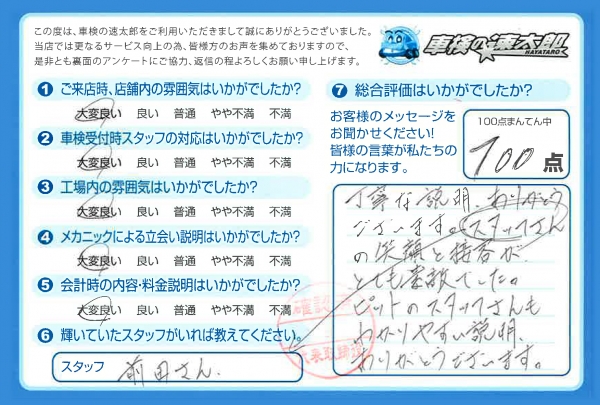 この度は、車検の速太郎をご利用いただきまして誠にありがとうございました。
当店では更なるサービス向上の為、皆様方のお声を集めておりますので、
是非とも裏面のアンケートにご協力、返信の程よろしくお願い申し上げます。
車検の速太郎
HAYATARO
1 ご来店時、店舗内の雰囲気はいかがでしたか?
大変良い 良い 普通 やや不満 不満
2 車検受付時スタッフの対応はいかがでしたか?
大変良い 良い 普通 やや不満 不満
3 工場内の雰囲気はいかがでしたか?
大変良い 良い 普通 やや不満 不満
4 メカニックによる立会い説明はいかがでしたか?
大変良い 良い 普通 やや不満 不満
5 会計時の内容・料金説明はいかがでしたか?
大変良い 良い 普通 やや不満 不満
6 輝いていたスタッフがいれば教えてください。
スタッフ 前田さん
7 総合評価はいかがでしたか?
お客様のメッセージを
お聞かせください!
皆様の言葉が私たちの
力になります。
100点まんてん中
100点
丁寧な説明、ありがとう
ございます。スタッフさん
の笑顔と接客が、
とても素敵でした。
ピットのスタッフさんも
わかりやすい説明、
ありがとうございます。
確認